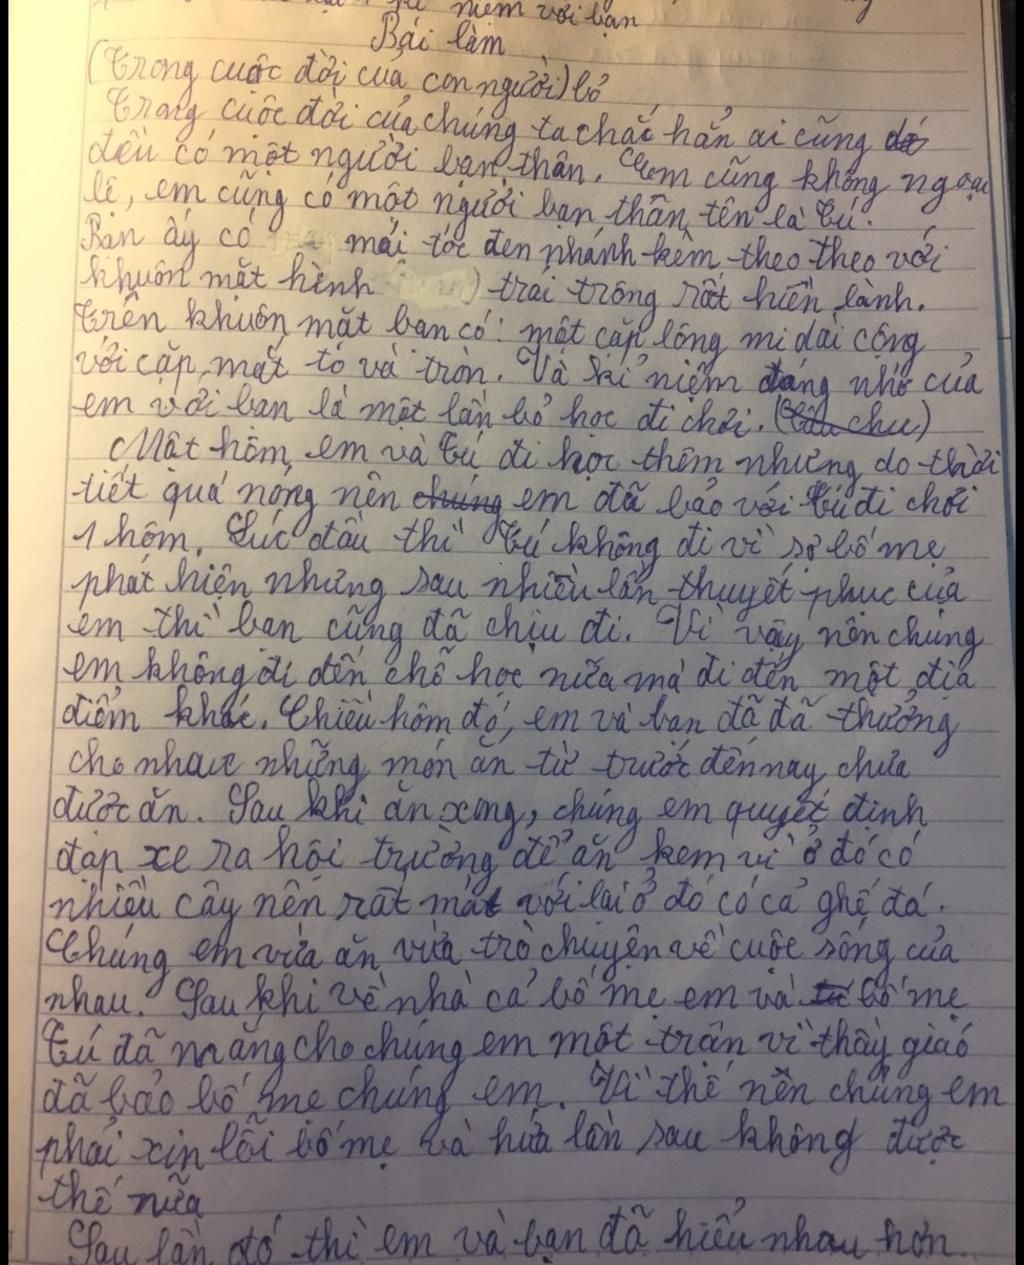 niệm với bạn
Bài làm
(Trong cuộc đời của con người) bỏ
Trong cuộc đời của chúng ta chắc hẳn ai cũng
đều có một người bạn thân. Em cũng không ngoại
lệ, em cũng có một người bạn thân tên là Tú.
Bạn ấy có mái tóc đen nhánh kèm theo theo với
khuôn mặt hình ) trái trông rất hiền lành.
Trên khuôn mặt bạn có: một cặp lông mi dài cộng
với cặp mắt to và tròn. Và kỉ niệm đáng nhớ của
em với bạn là một lần bỏ học đi chơi. (
Một hôm, em và Tú đi học thêm nhưng do thời
tiết quá nóng nên chúng em đã bảo với Tú đi chơi
1 hôm. Lúc đầu thì Tú không đi vì sợ bố mẹ
phát hiện nhưng sau nhiều lần thuyết phục của
em thì bạn cũng đã chịu đi. Vì vậy nên chúng
em không đi đến chỗ học nữa mà đi đến một địa
điểm khác. Chiều hôm đó, em và bạn đã đã thưởng
cho nhau những món ăn từ trước đến nay chưa
được ăn. Sau khi ăn xong, chúng em quyết định
đạp xe ra hội trường để ăn kem vì ở đó có
nhiều cây nên rất mát với lại ở đó có cả ghế đá.
Chúng em vừa ăn vừa trò chuyện về cuộc sống của
nhau. Sau khi về nhà cả bố mẹ em và bố mẹ
Tú đã mắng cho chúng em một trận vì thầy giáo
đã bảo bố mẹ chúng em. Vì thế nên chúng em
phải xin lỗi bố mẹ và hứa lần sau không được
thế nữa
Sau lần đó thì em và bạn đã hiểu nhau hơn